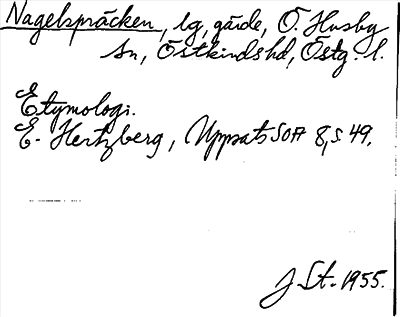 Nagelspräcken, lg, gärde, Ö. Husby
sn, Östkinds hd, Östg. l.
Etymologi.
E. Hertzberg, Uppsats SOA 8, s 49.
J St. 1955.